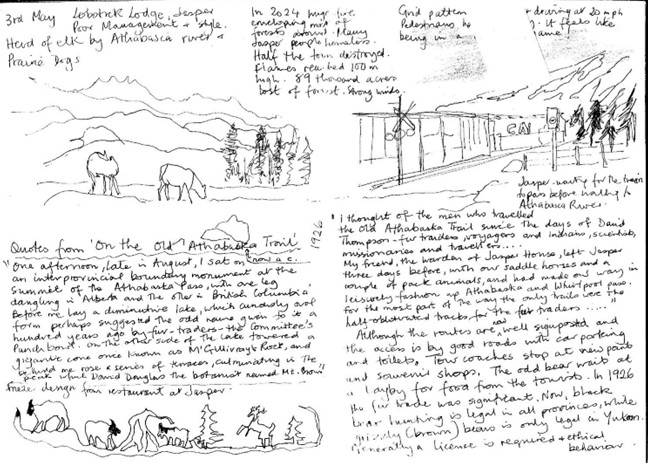 3rd May Lobstick Lodge, Jasper
Poor Management + style.
Herd of elk by Athabasca river +
Prairie Dogs
In 2024 huge fire
enveloping miles of
forests around. Many
Jasper people homeless.
Half the town destroyed.
Flames reached 100m
high. 89 thousand acres
lost of forest. Strong winds.
Grid pattern
Pedestrians
being in a
+ driving at 20 mph
. It feels like
game
CN
Jasper - waiting for the train
to pass before walking to
Athabasca River.
Quotes from 'On the Old Athabaska Trail'
1926
"One afternoon, late in August, I sat on
an interprovincial boundary monument at the
summit of the Athabasca Pass, with one leg
dangling in Alberta and the other in British Columbia.
Before me lay a diminutive lake, which curiously oval
form perhaps suggested the odd name given to it a
hundred years ago by fur-traders - the Committee's
Punch bowl. On the other side of the lake towered a
gigantic cone once known as M'Gillivray's Rock, and
behind me rose a series of terraces, culminating in the
peak which David Douglas the botanist named Mt. Brown"
Frieze design from restaurant at Jasper.
"I thought of the men who travelled
the Old Athabaska Trail since the days of David
Thompson - fur traders, voyagers and Indians, scientists,
missionaries and travellers....
My friend, the warden of Jasper House, left Jasper
three days before, with our saddle horses and a
couple of pack animals, and had made our way in
leisurely fashion up Athabaska and Whirlpool pass.
For the most part of the way the only trails were the
half-obstructed tracks for the fur traders ....."
Although the routes are well signposted and
the access is by good roads with car parking
and toilets, Tour coaches stop at view point
and souvenir shops. The odd bear waits at
a layby for food from the tourists. In 1926
the fur trade was significant. Now, black
bear hunting is legal in all provinces, while
grizzly (brown) bears is only legal in Yukon.
Generally a license is required + ethical
behaviour.